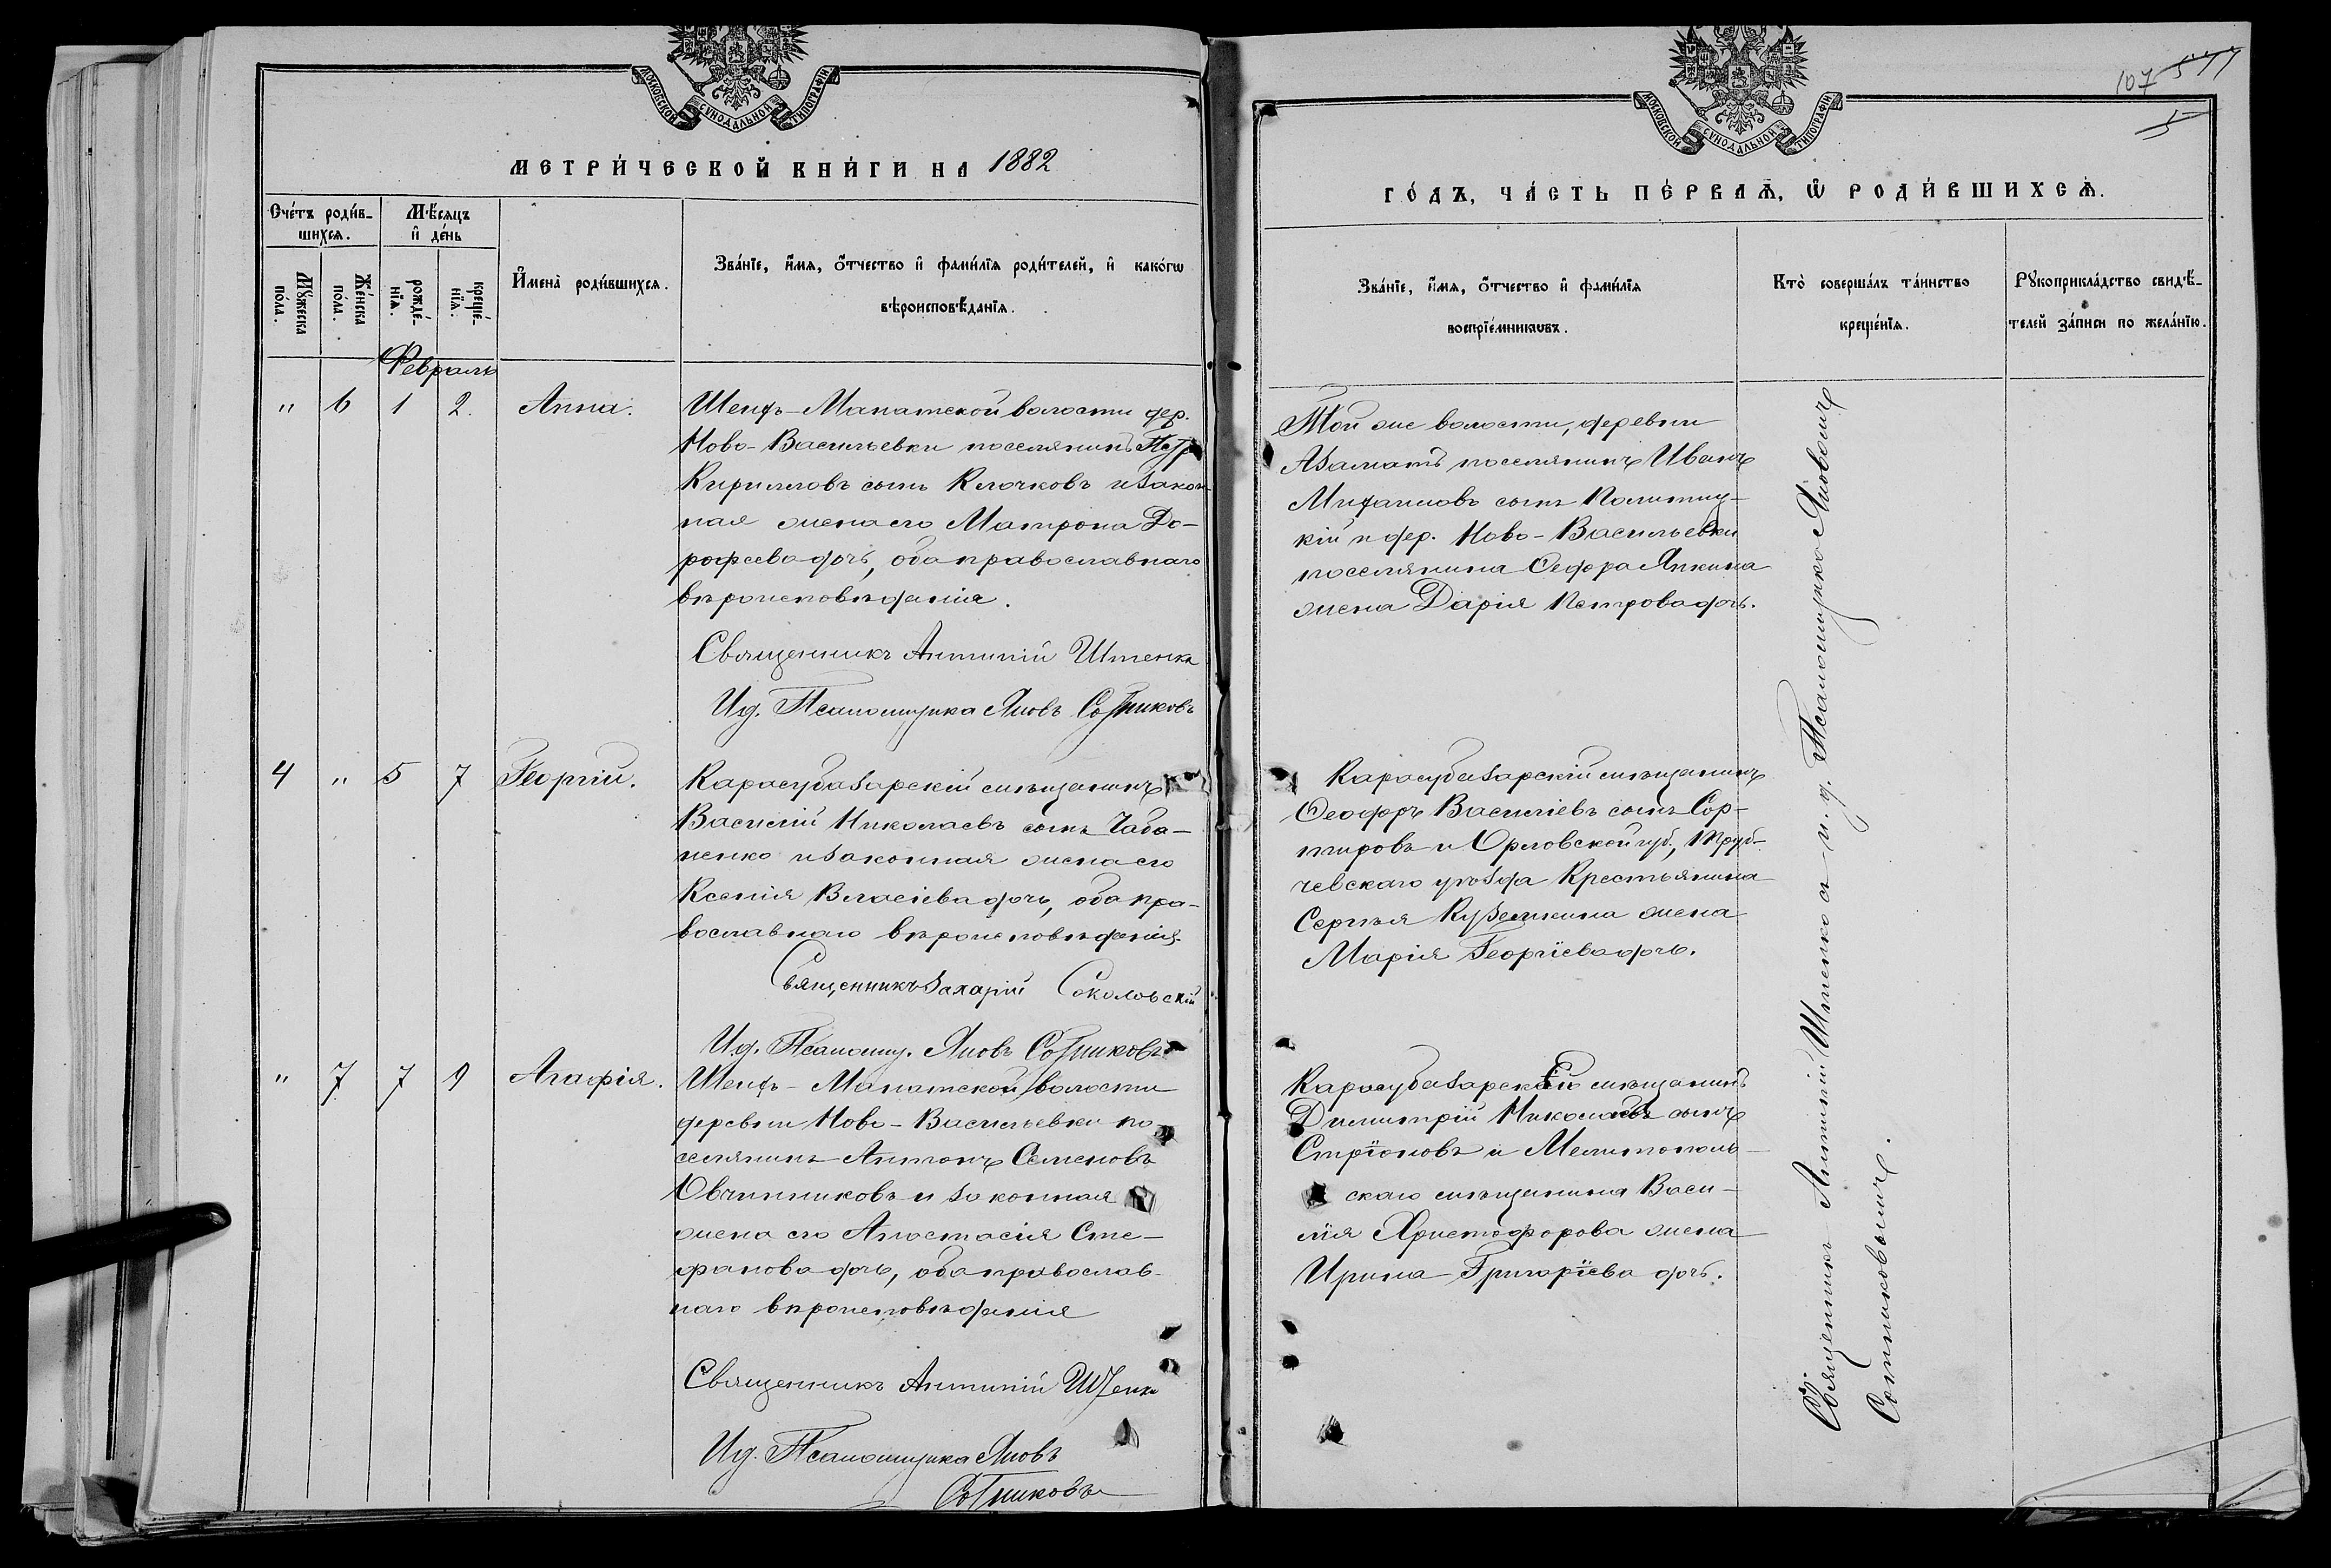 МОСКОВСКОЙ СУНОДАЛЬНОЙ ТИПОГРАФІИ
МЕТРИ́ЧЕСКОЙ КНИ́ГИ НА 1882
Сче́тъ роди́в-
шихсѧ.
Мѣ́сѧцъ
и҆ де́нь
Мꙋ́жеска
по́ла.
Же́нска
по́ла.
рожде́-
нїѧ.
креще́-
нїѧ.
И҆мена̀ роди́вшихсѧ.
Зва́нїе, и҆́мѧ, ѻ҆́тчество и҆ фами́лїѧ роди́телей, и҆ како́гѡ
вѣроисповѣ́данїѧ.
Февраль
" 6 1 2. Анна.
Шейхъ-Манатской волости дер.
Ново-Васильевки поселянинъ Петръ
Кирилловъ сынъ Клочковъ и закон-
ная жена его Матрона До-
рофеева дочь, оба православнаго
вѣроисповѣданія.
Священникъ Антипій Штенко
И.д. Псаломщика Яковъ Сотниковъ
4 " 5 7 Георгій.
Карасубазарскій мѣщанинъ
Василій Николаевъ сынъ Чаба-
ненко и законная жена его
Ксенія Власіева дочь, оба пра-
вославнаго вѣроисповѣданія.
Священникъ Захарій Соколовскій
И.д. Псаломщ. Яковъ Сотниковъ
" 7 7 9 Агафія.
Шейхъ-Манатской волости
деревни Ново-Васильевки по-
селянинъ Антонъ Семеновъ
Овчинниковъ и законная
жена его Анастасія Сте-
фанова дочь, оба православ-
наго вѣроисповѣданія
Священникъ Антипій Штенко
И.д. Псаломщика Яковъ
Сотниковъ
МОСКОВСКОЙ СУНОДАЛЬНОЙ ТИПОГРАФІИ
107
ГО́ДЪ, ЧА́СТЬ ПЕ́РВАѦ, Ѽ РОДИ́ВШИХСѦ.
Зва́нїе, и҆́мѧ, ѻ҆́тчество и҆ фами́лїѧ
воспрїе́мникѡвъ.
Кто̀ соверша́лъ та́инство
креще́нїѧ.
Рꙋкоприкла́дство свидѣ́-
телей за́писи по жела́нїю.
Той же волости, деревни
Азаматъ поселянинъ Иванъ
сынъ
кій и дер. Ново-Васильевки
поселянина Ѳедора Япкина
жена Дарія Петрова дочь.
Карасубазарскій мѣщанинъ
Ѳеодоръ Василіевъ сынъ Сор-
тировъ и Орловской губ., Труб-
чевскаго уѣзда Крестьянина
Сергѣя Куземкина жена
Марія Георгіева дочь.
Карасубазарскій мѣщанинъ
Димитрій Николаевъ сынъ
Стріоновъ и Мелитополь-
скаго мѣщанина Васи-
лія Христофорова жена
Ирина Григоріева дочь.
Священникъ Антипій Штенко съ и. д. Псаломщика Яковомъ
Сотниковымъ.